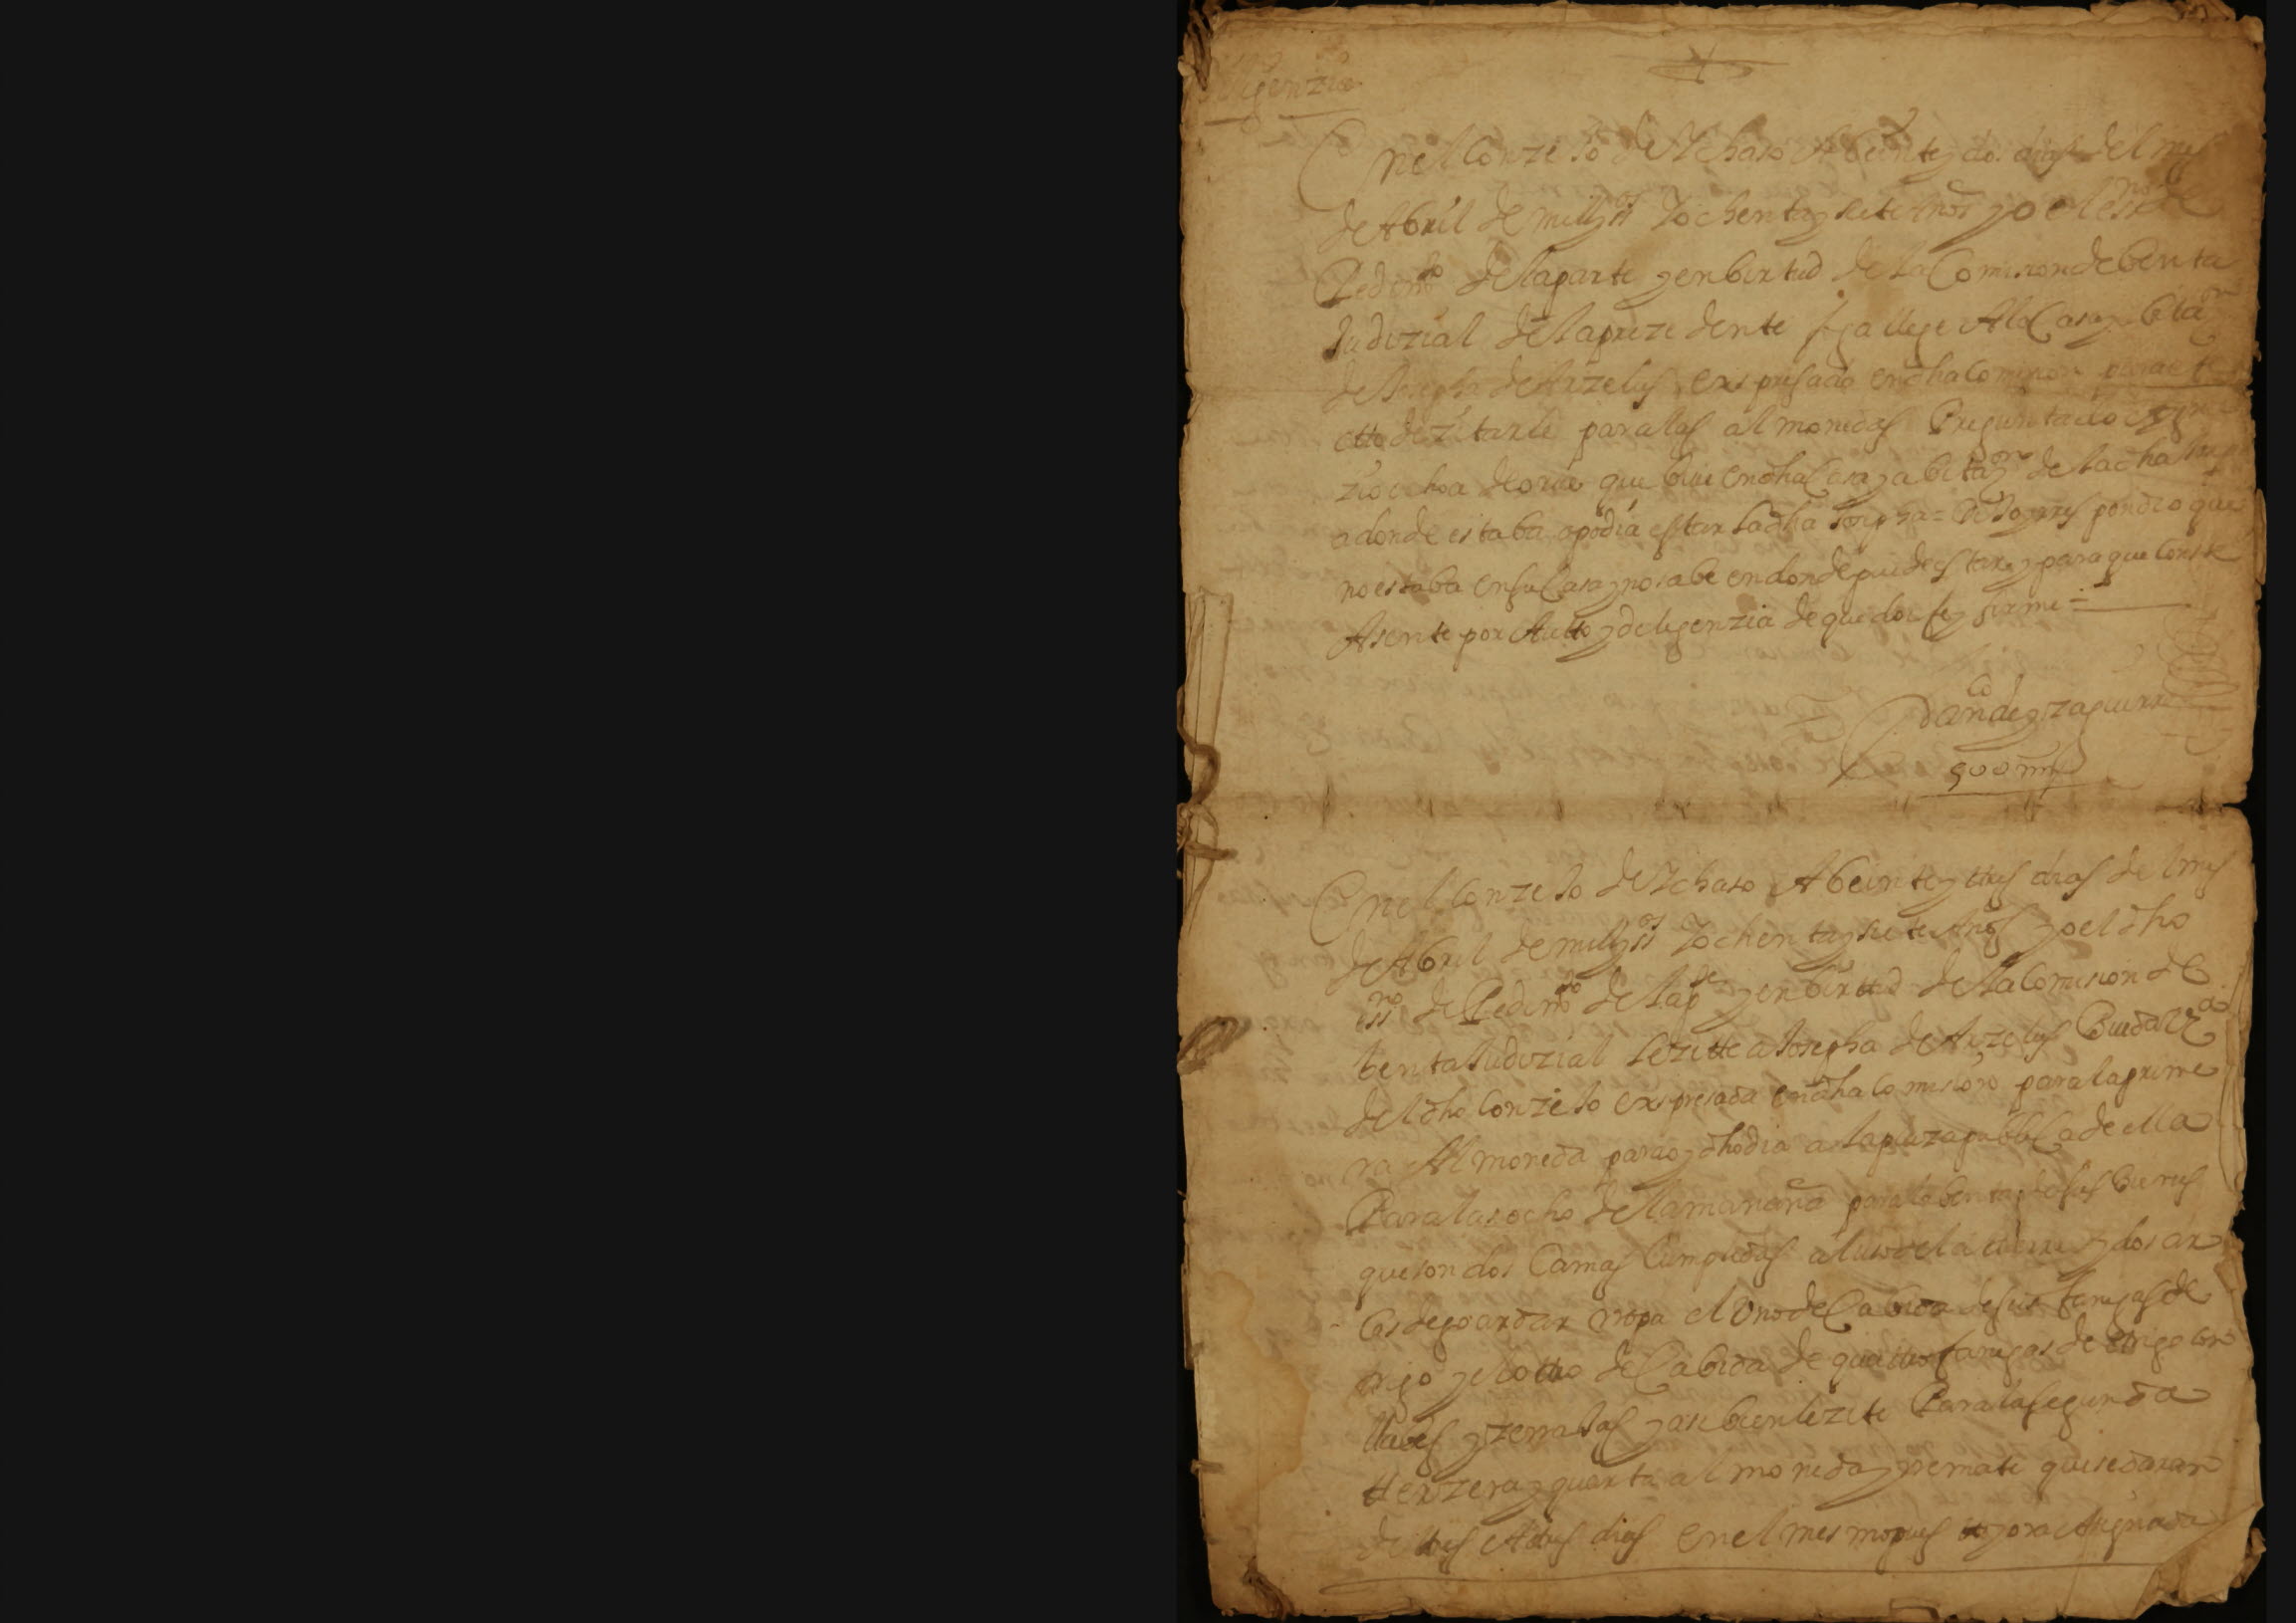 En el Conzejo de Ichaso A beinte y dos dias del mes
de Abril de mill y ss.os y ochenta y siete Años yo el ess.no de
Pedim.to de la parte y en birtud de la Comision de benta
Judizial de la prezedente foja llege A la Casa y
de Josepha de Arzelus, exspresado en dha comision para efe
cto de zitarle para las almonedas Preguntado
que bive en dha Casa y abittaz.on de la dha
adonde estaba o podia estar la dha Josepha = respondio que
no estaba en su Casa y no sabe en donde puede estar y para que conste
Asente por Autto y delegenzia de que doi fe y firme =
En el Conzejo de Ichaso A beinte y tres dias del mes
de Abril de mill y ss.os y ochenta y siete Años yo el dho
ess.no de Pedim.to de la p.te y en birttud de la Comision de
benta Judizial le zitte a Josepha de Arzelus
del dho Conzejo exspresada en dha comision para la prime
ra Almoneda para oy dho dia a la plaza publica de ella
Para las ocho de la mañana para la benta de sus bienes
que son dos Camas Cumplidas al uso de la tierra y dos ar
cas de goardar rropa el Uno de Cabida de seis fanegas de
trigo y el otro de Cabida de quattro fanegas de trigo con
llabes y zerrajas y asi bien le zite Para la segunda
terzera y quarta almoneda y remate que se daran
de tres A tres dias en el mesmo puesto y ora Asignada